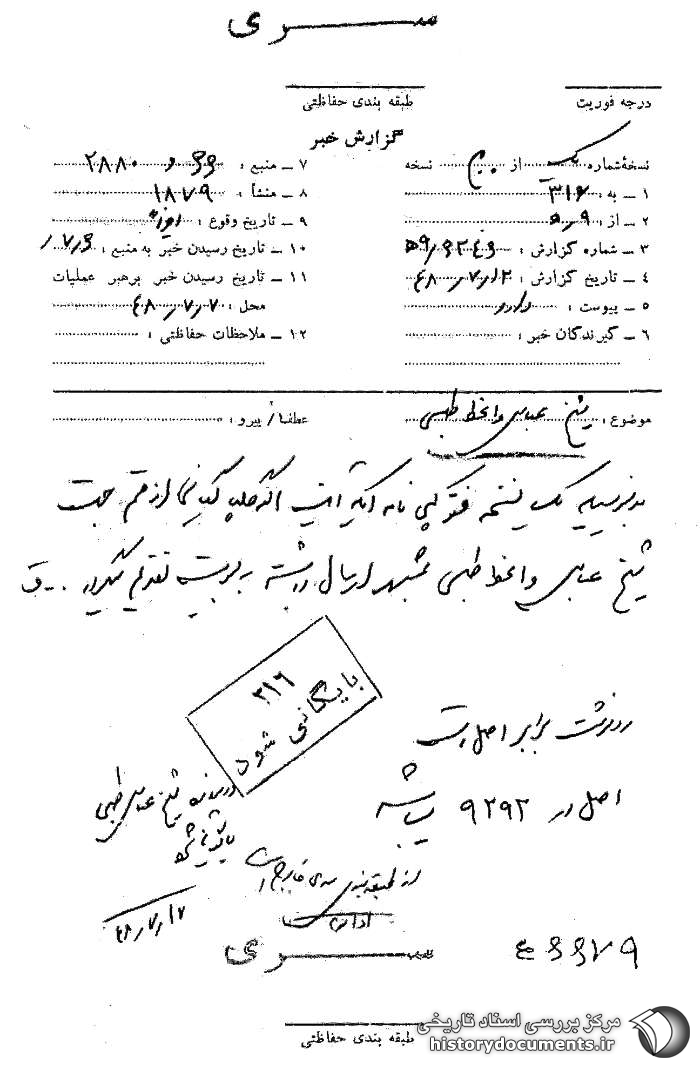 سری
درجه فوریت
طبقه بندی حفاظتی
گزارش خبر
نسخهٔ شماره یک از پنج نسخه
۱ ـ به: ۳۱۶
۲ ـ از: ۹ه‍
۳ ـ شماره گزارش:
۴ ـ تاریخ گزارش: ۴۸٫۷٫۱۲
۵ ـ پیوست: دارد
۶ ـ گیرندگان خبر:
۷ ـ منبع: ۲۸۸۰
۸ ـ منشأ: ۱۸۷۹
۹ ـ تاریخ وقوع:
۱۰ ـ تاریخ رسیدن خبر به منبع:
۱۱ ـ تاریخ رسیدن خبر برهبر عملیات
محل: ۴۸٫۷٫۷
۱۲ ـ ملاحظات حفاظتی:
موضوع: شیخ عباس واعظ طبسی
عطف / پیرو:
بدینوسیله یک نسخه فتوکپی نامه آیت الله گلپایگانی از قم جهت
شیخ عباس واعظ طبسی بمشهد ارسال داشته به پیوست تقدیم میگردد.
۳۱۶
بایگانی شود
رونوشت برابر اصل است
اصل در ۹۲۹۲ میباشد
در پرونده شیخ عباس طبسی
بایگانی شود
۴۸٫۷٫۱۷
از طبقه بندی سری خارج است
سری
۴۶۶۷۹
طبقه بندی حفاظتی
مرکز بررسی اسناد تاریخی
historydocuments.ir